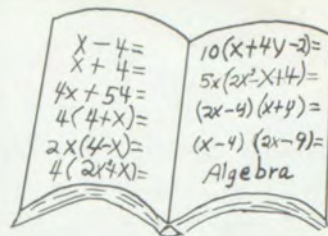 x - 4 =
x + 4 =
4x + 54 =
4(4+x)=
2x(4-x)=
4(2x²+x)=
10(x+4y-2)=
5x(2x²-x+4)=
(2x-4)(x+y)=
(x-4) (2x-9)=
Algebra